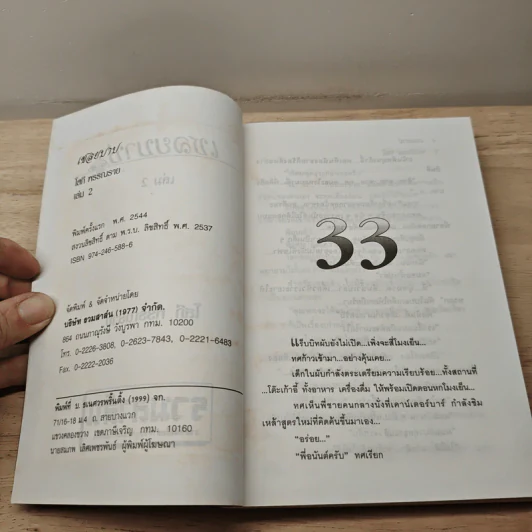 เชลยบาป
โชติ พรรณราย
เล่ม 2
พิมพ์ครั้งแรก พ.ศ. 2544
สงวนลิขสิทธิ์ ตาม พ.ร.บ. ลิขสิทธิ์ พ.ศ. 2537
ISBN 974-246-586-6
จัดพิมพ์ & จัดจำหน่ายโดย
บริษัท รวมสาส์น (1977) จำกัด.
864 ถนนภาณุรังษี วังบูรพา กทม. 10200
โทร. 0-2226-3808, 0-2623-7843, 0-2221-6483
Fax. 0-2222-2036
พิมพ์ที่ บ. ธเนศวรพริ้นติ้ง (1999) จก.
71/16-18 ม.4 ถ. สายบางแวก
แขวงคลองขวาง เขตภาษีเจริญ กทม. 10160
นายสมภพ เลิศเพชรพันธ์ ผู้พิมพ์ผู้โฆษณา
33
แร็บบิทผับยังไม่เปิด...เพิ่งจะสี่โมงเย็น...
ทศก้าวเข้ามา...อย่างคุ้นเคย...
เด็กในผับกำลังตระเตรียมความเรียบร้อย...ทั้งสถานที่
...โต๊ะเก้าอี้ ทั้งอาหาร เครื่องดื่ม ให้พร้อมเปิดตอนหกโมงเย็น...
ทศเห็นพี่ชายคนกลางนั่งที่เคาน์เตอร์บาร์ กำลังชิม
เหล้าสูตรใหม่ที่คิดค้นขึ้นมาเอง...
"อร่อย..."
"พี่อนันต์ครับ" ทศเรียก